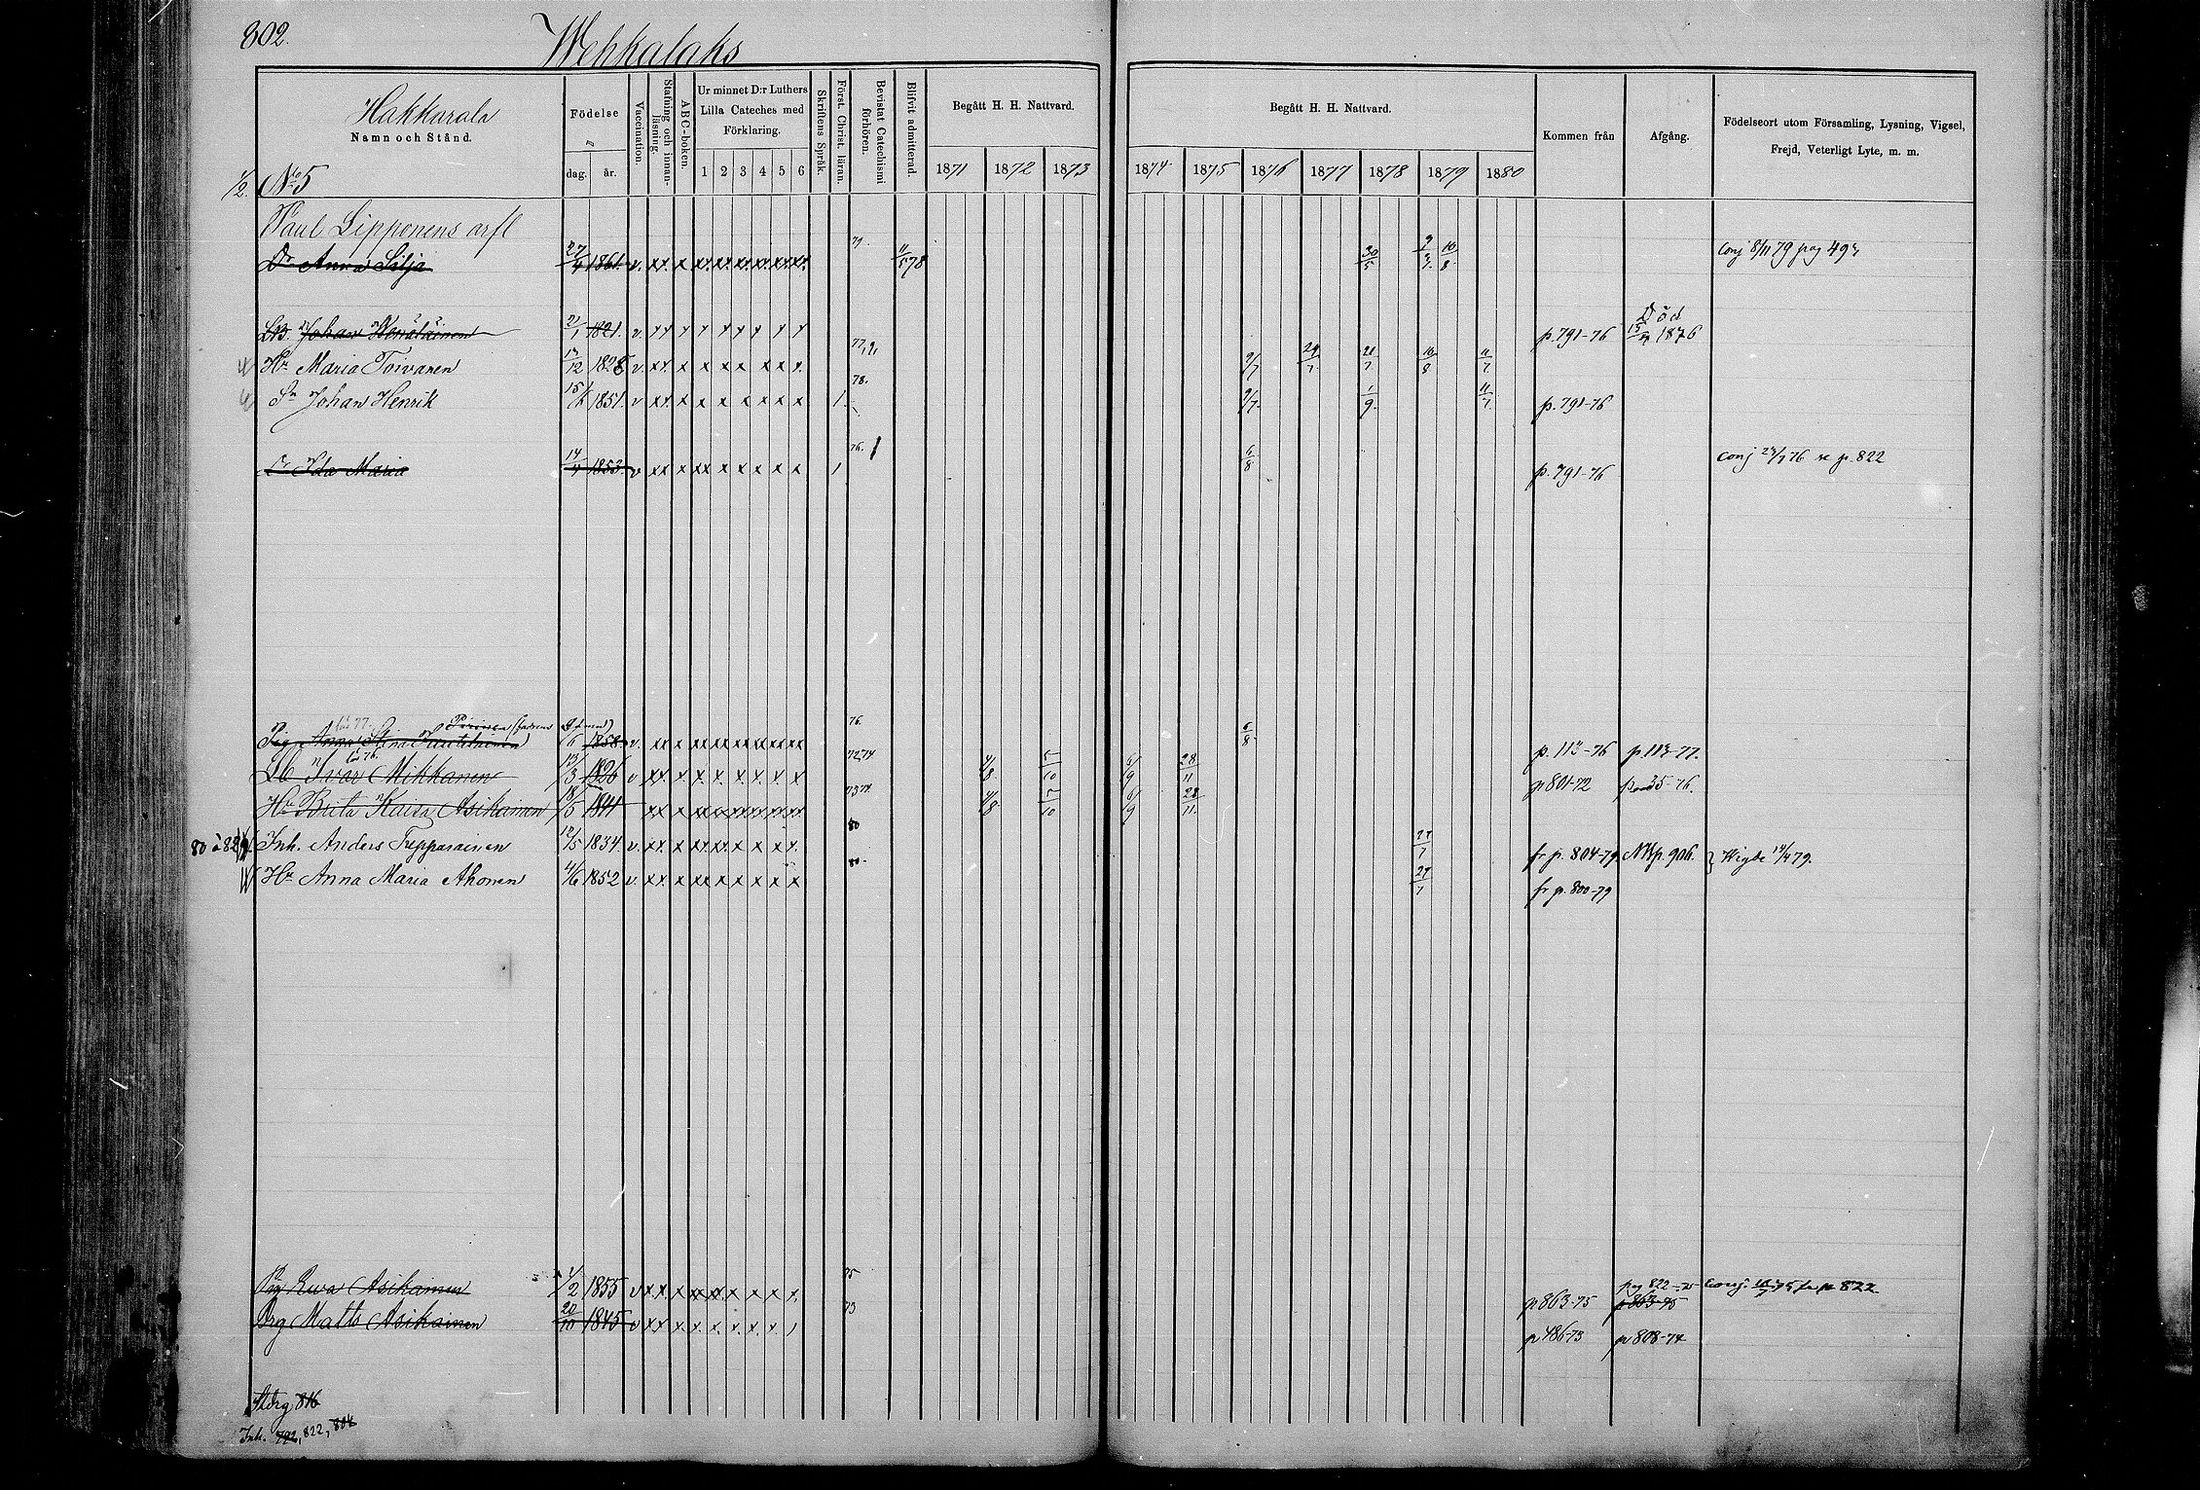 802.
Wehkalaks
Hakkarala
Namn och Stånd.
Födelse
dag. år.
Vaccination.
Stafning och innan-läsning.
ABC-boken.
Ur minnet D:r Luthers Lilla Cateches med Förklaring.
1 2 3 4 5 6
Skriftens Språk.
Först. Christ. läran.
Bevistat Catechismi förhören.
Blifvit admitterad.
Begått H. H. Nattvard.
1871 1872 1873
Begått H. H. Nattvard.
1874 1875 1876 1877 1878 1879 1880
Kommen från
Afgång.
Födelseort utom Församling, Lysning, Vigsel, Frejd, Veterligt Lyte, m. m.
1/2. No 5
Paul Lipponens arfl
Dr Anna Silja 27/4 1861. v. xx. x 79. 11/5 78 30/5 10/8 conj 8/11 79 pag
Johan 21/1 1821. v. p. 791-76 Död 1876
Hu Maria Toivanen 17/12 v. xx. x 77,9, 9/7 29/7 21/7 10/8 11/7
Sn Johan Henrik 1851. v xx. x 78. 9/7. 1/9. 11/7 p. 791-76
Dr Ida Maria 14/4 1853. v xx x 76. 6/8 p. 791-76 conj 76 se p. 822
Pig Anna Stina Pirinen 1858. v. xx x 76. 6/8 -76 -77.
Lb Ivar Mikkanen 13/3 1826 v xx. x 72,74 4/8 17/10 6/9 28/11 p 801-72 -76.
Hu Brita Kaisa Asikainen 18/5 1841 xx x 4/8 17/10 6/9 28/11. 
80 å 82
Inh. Anders Tepparainen 12/5 1834. v. xx. x 80 27/7 fr p. 804-79. Ntsp. 906. Vigde 79.
Hu Anna Maria Ahonen 4/6 1852 v. xx. x 80. 27/7 fr p. 800-79
Pig Ewa Asikainen 1/2 1855 v xx. x 75 p 863-75 pag 822-75 p 863-75 conj. 75 p 822
Drg Matts Asikainen 20/10 1845 v xx x 73 p 486-73 p 808-74
816
Inh. 792, 822, 804